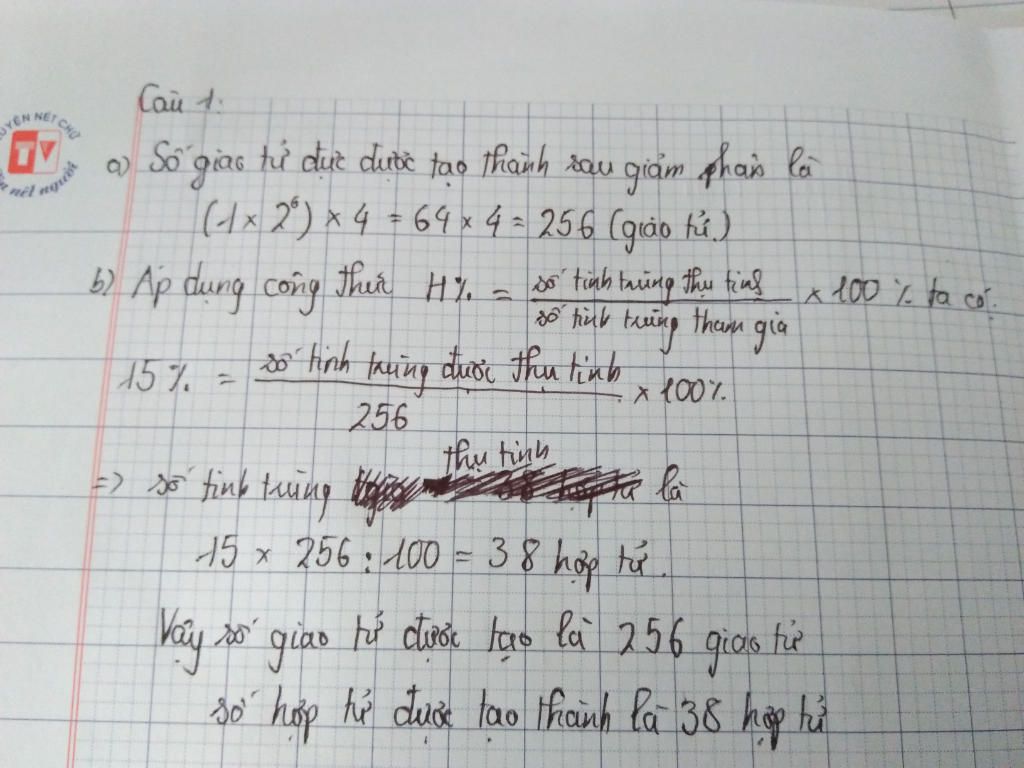 Câu 1:
UYỆN NÉT CHỮ
TV
nét người
a) Số giao tử đực được tạo thành sau giảm phân là
(1 x 2⁶) x 4 = 64 x 4 = 256 (giao tử)
b) Áp dụng công thức H% = số tinh trùng thụ tinh / số tinh trùng tham gia x 100 % ta có:
15% = số tinh trùng được thụ tinh / 256 x 100%
=> số tinh trùng thụ tinh là
15 x 256 : 100 = 38 hợp tử.
Vậy số giao tử được tạo là 256 giao tử
số hợp tử được tạo thành là 38 hợp tử